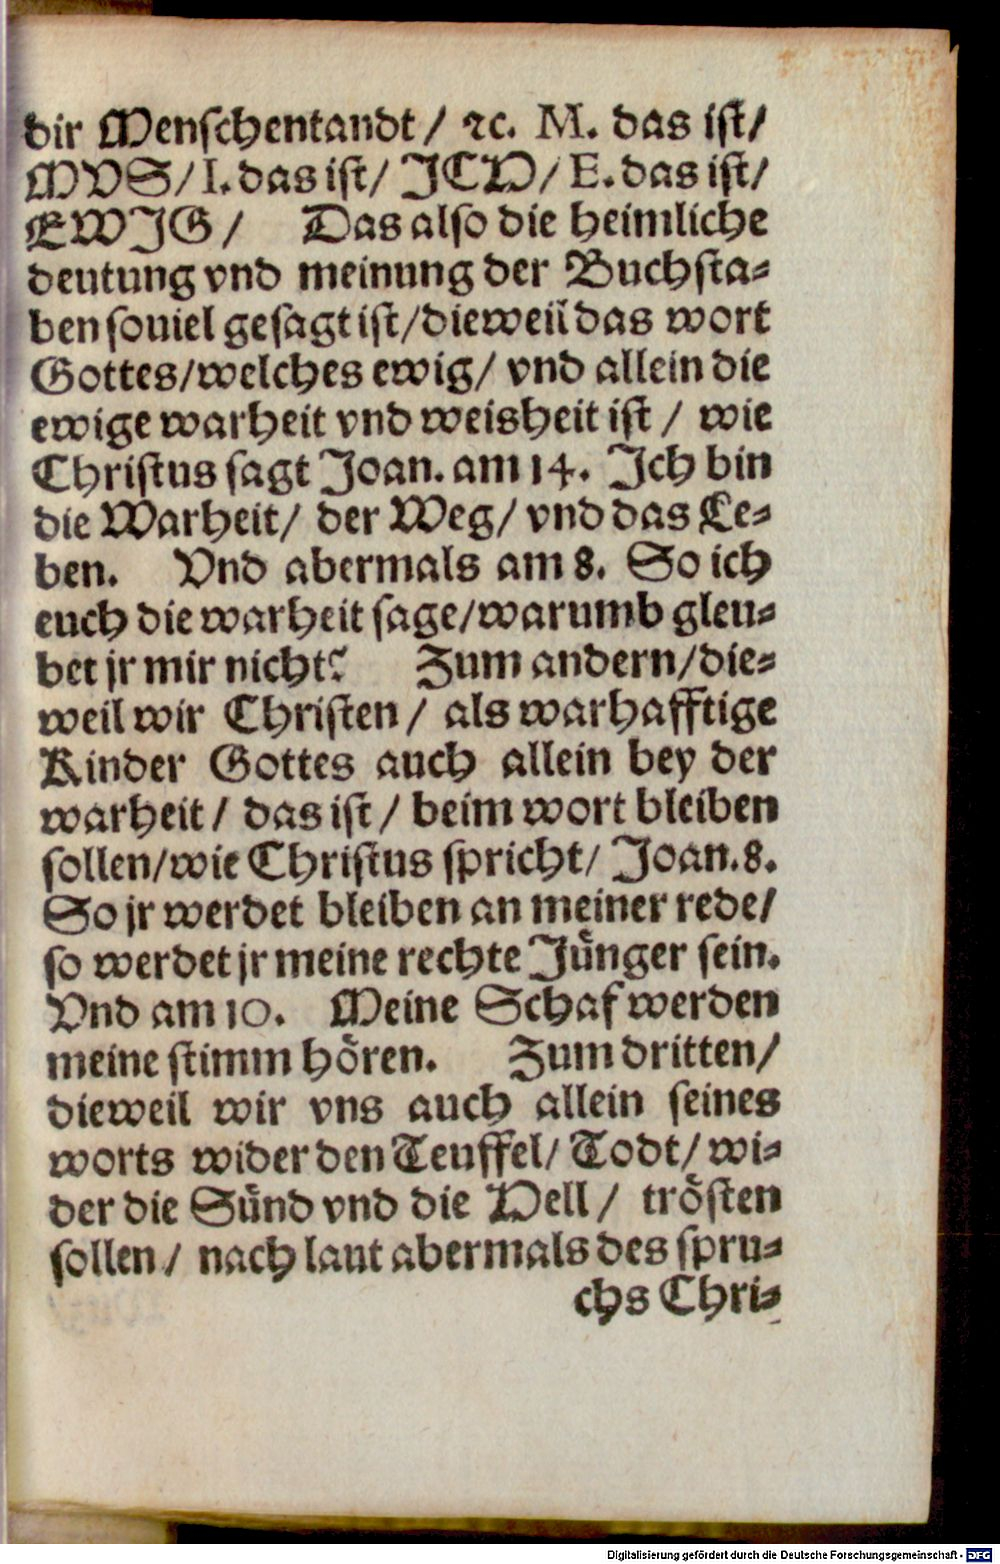 dir Menschentandt / ꝛc. M. das ist/
MVS/ I. das ist/ JCH/ E. das ist/
EWJG / Das also die heimliche
deutung vnd meinung der Buchsta⸗
ben souiel gesagt ist/dieweil das wort
Gottes/welches ewig/ vnd allein die
ewige warheit vnd weisheit ist / wie
Christus sagt Joan. am 14. Ich bin
die Warheit/ der Weg/ vnd das Le⸗
ben. Vnd abermals am 8. So ich
euch die warheit sage/warumb gleu⸗
bet jr mir nicht? Zum andern/die⸗
weil wir Christen / als warhafftige
Kinder Gottes auch allein bey der
warheit / das ist / beim wort bleiben
sollen/wie Christus spricht/ Joan. 8.
So jr werdet bleiben an meiner rede/
so werdet jr meine rechte Jünger sein.
Vnd am 10. Meine Schaf werden
meine stimm hören. Zum dritten/
dieweil wir vns auch allein seines
worts wider den Teuffel/ Todt/ wi⸗
der die Sünd vnd die Hell / trösten
sollen / nach laut abermals des spru⸗
chs Chri⸗
Digitalisierung gefördert durch die Deutsche Forschungsgemeinschaft - DFG